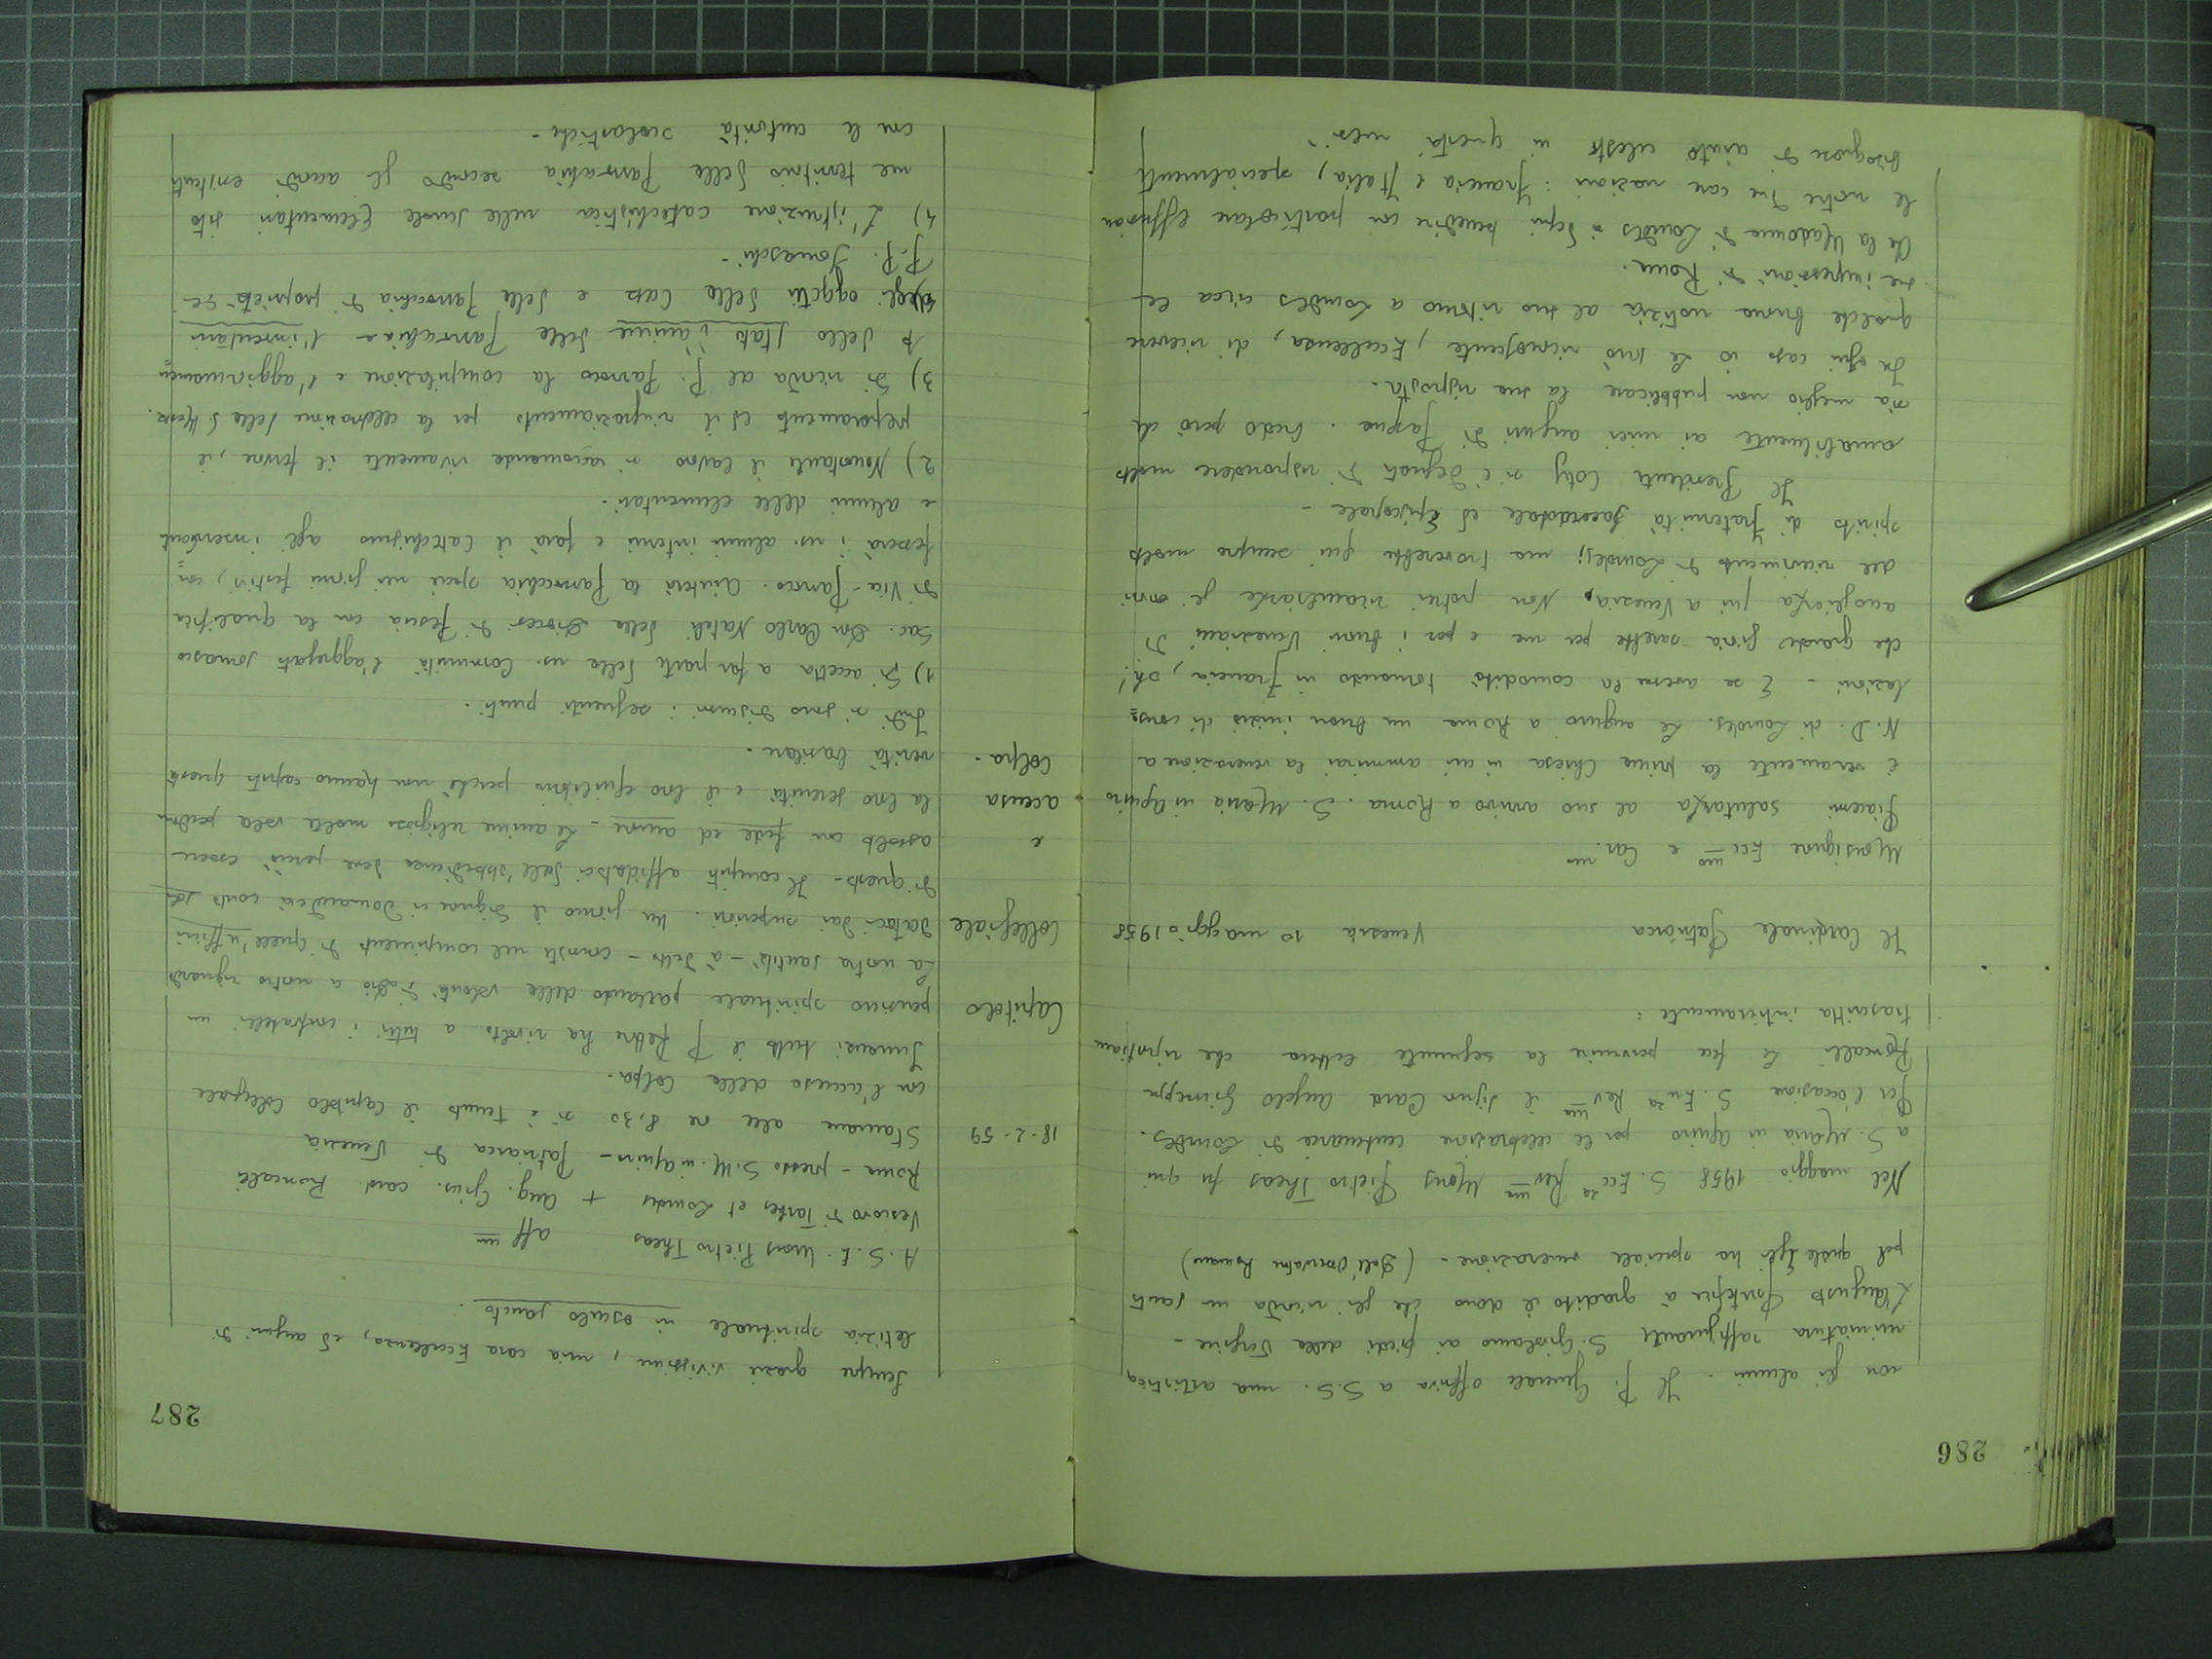 286
non gli alunni. Il P. Generale offriva a S.S. una artistica
miniatura raffigurante S. Girolamo ai piedi della Vergine -
L'augusto Pontefice à gradito il dono che gli ricorda un santo
pel quale Egli ha speciale venerazione - (Dall'Osservatore Romano)
Nel maggio 1958 S. Ecc.za Rev.ma Mons Pietro Theas fu qui
a S. Maria in Aquiro per le celebrazioni centenarie di Lourdes.
Per l'occasione S. Em.za Rev.ma il Signor Card Angelo Giuseppe
Roncalli le fece pervenire la seguente lettera che riportiamo
trascritta interamente:
Il Cardinale Patriarca Venezia 10 maggio 1958
Monsignore Ecc.mo e Car.mo
Piacemi salutarLa al suo arrivo a Roma. S. Maria in Aquiro
è veramente la prima Chiesa in cui ammirai la venerazione a
N. D. di Lourdes. Le auguro a Roma un buon inizio di conso=
lazioni - E se avesse la comodità tornando in Francia, oh!
che grande gioia sarebbe per me e per i buoni Veneziani di
accoglierLa qui a Venezia. Non potrei ricambiarLe gli onori
del ricevimento di Lourdes; ma troverebbe qui sempre molto
spirito di fraternità sacerdotale ed Episcopale -
Il Presidente Coty si è degnato di rispondere molto
amabilmente ai miei auguri di Pasqua. Credo però che
sia meglio non pubblicare la sua risposta.
In ogni caso io Le sarò riconoscente, Eccellenza, di ricevere
qualche buona notizia al suo ritorno a Lourdes circa le
sue impressioni di Roma.
Che la Madonna di Lourdes si degni benedire con particolare effusione
le nostre due care nazioni: Francia e Italia, specialmente
bisognose di aiuto celeste in questi mesi
287
Sempre grazie vivissime, mia cara Eccellenza, ed auguri di
letizia spirituale in osculo sancto.
A. S. E. Mons Pietro Theas aff.mo
Vescovo di Tarbes et Lourdes + Ang. Gius. card. Roncalli
Roma - presso S. M. in Aquiro - Patriarca di Venezia
18-2-59 Stamane alle ore 8,30 si è tenuto il Capitolo Collegiale
con l'accusa della Colpa.
Innanzi tutto il P. Rettore ha rivolto a tutti i confratelli un
Capitolo pensiero spirituale parlando della volontà di Dio a nostro riguardo
La nostra santità - à detto - consiste nel compimento di quell'ufficio
Collegiale datoci dai superiori. Un giorno il Signore ci domanderà conto sol
di questo - Il compito affidatoci dall'obbedienza deve perciò essere
e assolto con fede ed amore - Le anime religiose molte volte perdono
accusa la loro serenità e il loro equilibrio perché non hanno capito questa
colpa. verità basilare.
Indi si sono discussi i seguenti punti.
1) Si accetta a far parte della ns. Comunità l'aggregato somasco
Sac. Don Carlo Natali della Diocesi di Pescia con la qualifica
di Vice-Parroco. Aiuterà la Parrocchia specie nei giorni festivi, con=
fesserà i ns. alunni interni e farà il Catechismo agli inservienti
e alunni delle elementari.
2) Nonostante il lavoro si raccomanda vivamente il fervore, il
preparamento ed il ringraziamento per la celebrazione della S. Messa.
3) Si ricorda al P. Parroco la compilazione e l'aggiornamen=
to dello stato d'anime della Parrocchia e l'inventario
degli oggetti della Casa e della Parrocchia di proprietà dei
P.P. Somaschi -
4) L'istruzione catechistica nelle Scuole Elementari site
nel territorio della Parrocchia secondo gli accordi esistenti
con le autorità scolastiche -